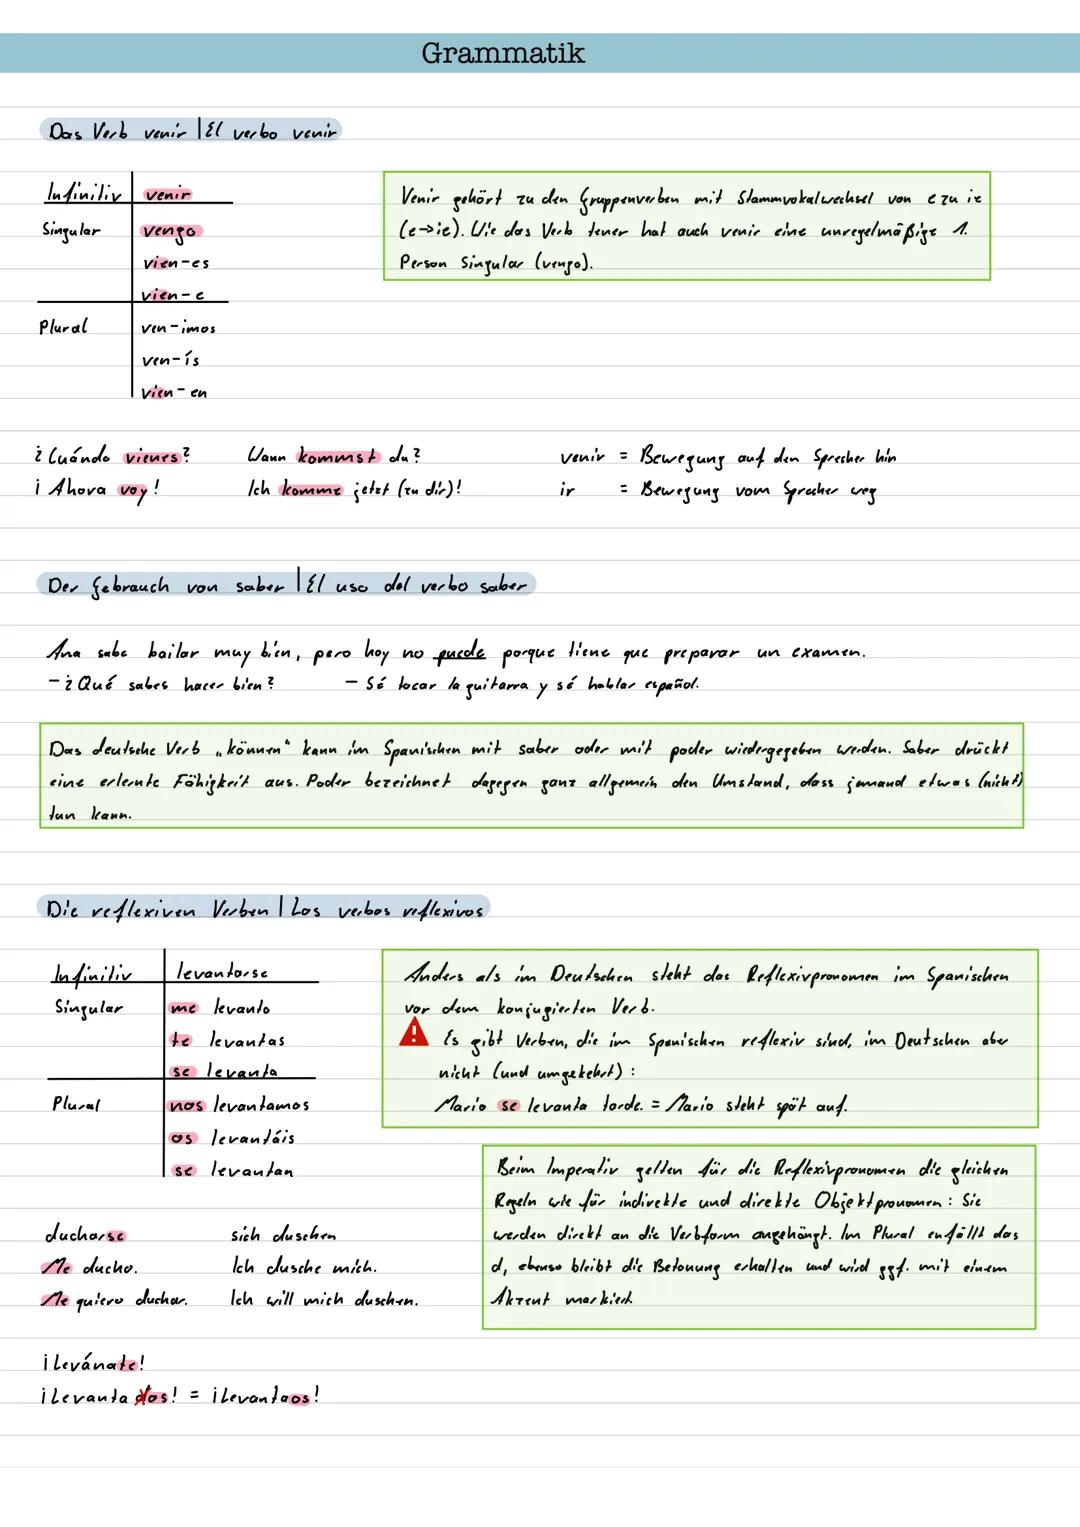 Grammatik
Das Verb venir | El verbo venir
Infinitiv venir
Singular vengo
vien-es
vien-e
Plural ven-imos
ven-ís
vien-en
Venir gehört zu den Gruppenverben mit Stammvokalwechsel von e zu ie
(e→ie). Wie das Verb tener hat auch venir eine unregelmäßige 1.
Person Singular (vengo).
¿Cuándo vienes? Wann kommst du? venir = Bewegung auf den Sprecher hin
¡Ahora voy! Ich komme jetzt (zu dir)! ir = Bewegung vom Sprecher weg
Der Gebrauch von saber | El uso del verbo saber
Ana sabe bailar muy bien, pero hoy no puede porque tiene que preparar un examen.
- ¿Qué sabes hacer bien? - Sé tocar la guitarra y sé hablar español.
Das deutsche Verb „können“ kann im Spanischen mit saber oder mit poder wiedergegeben werden. Saber drückt
eine erlernte Fähigkeit aus. Poder bezeichnet dagegen ganz allgemein den Umstand, dass jemand etwas (nicht)
tun kann.
Die reflexiven Verben | Los verbos reflexivos
Infinitiv levantarse
Singular me levanto
te levantas
se levanta
Plural nos levantamos
os levantáis
se levantan
Anders als im Deutschen steht das Reflexivpronomen im Spanischen
vor dem konjugierten Verb.
Es gibt Verben, die im Spanischen reflexiv sind, im Deutschen aber
nicht (und umgekehrt):
Mario se levanta tarde. = Mario steht spät auf.
Beim Imperativ gelten für die Reflexivpronomen die gleichen
Regeln wie für indirekte und direkte Objektpronomen: Sie
werden direkt an die Verbform angehängt. Im Plural enfällt das
d, ebenso bleibt die Betonung erhalten und wird ggf. mit einem
Akzent markiert.
ducharse sich duschen
Me ducho. Ich dusche mich.
Me quiero duchar. Ich will mich duschen.
¡Levánate!
¡Levantados! = ¡Levantaos!